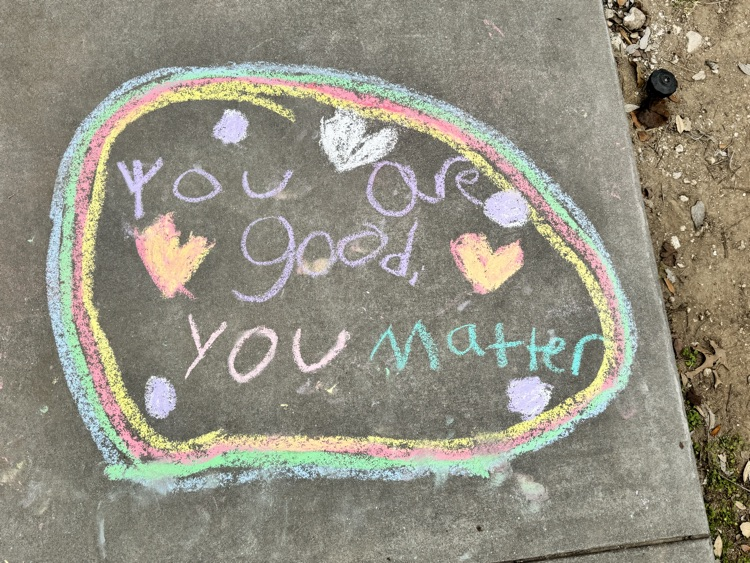 You are
good,
you matter